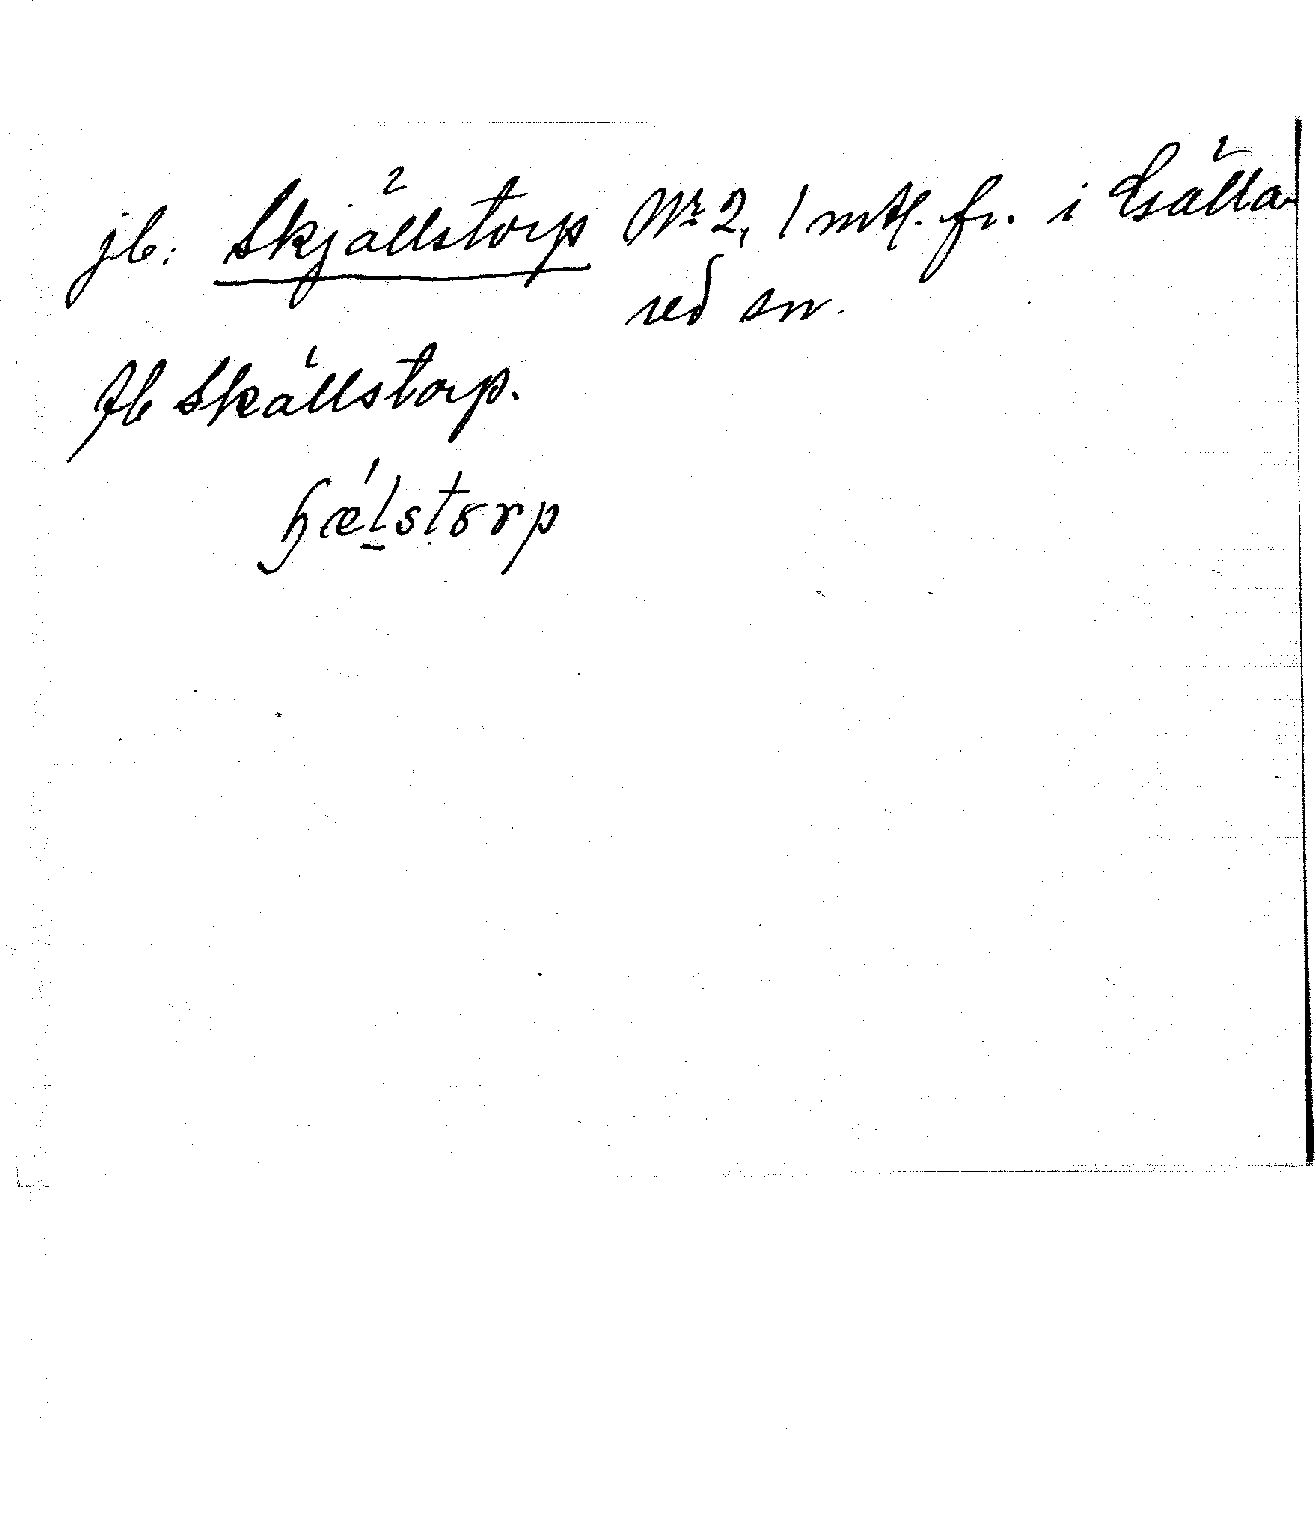 jb: Skjällstorp Nr 2, 1 mtl. fr. i Gsälla-
red sn.
Jb Skällstorp.
ɧǽlstorp